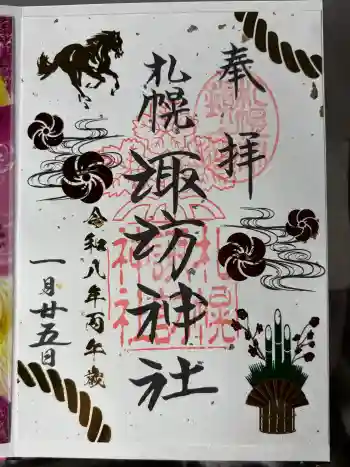 奉拝
札幌
諏訪神社
令和八年丙午歳
一月廿五日
札幌
諏訪
神社